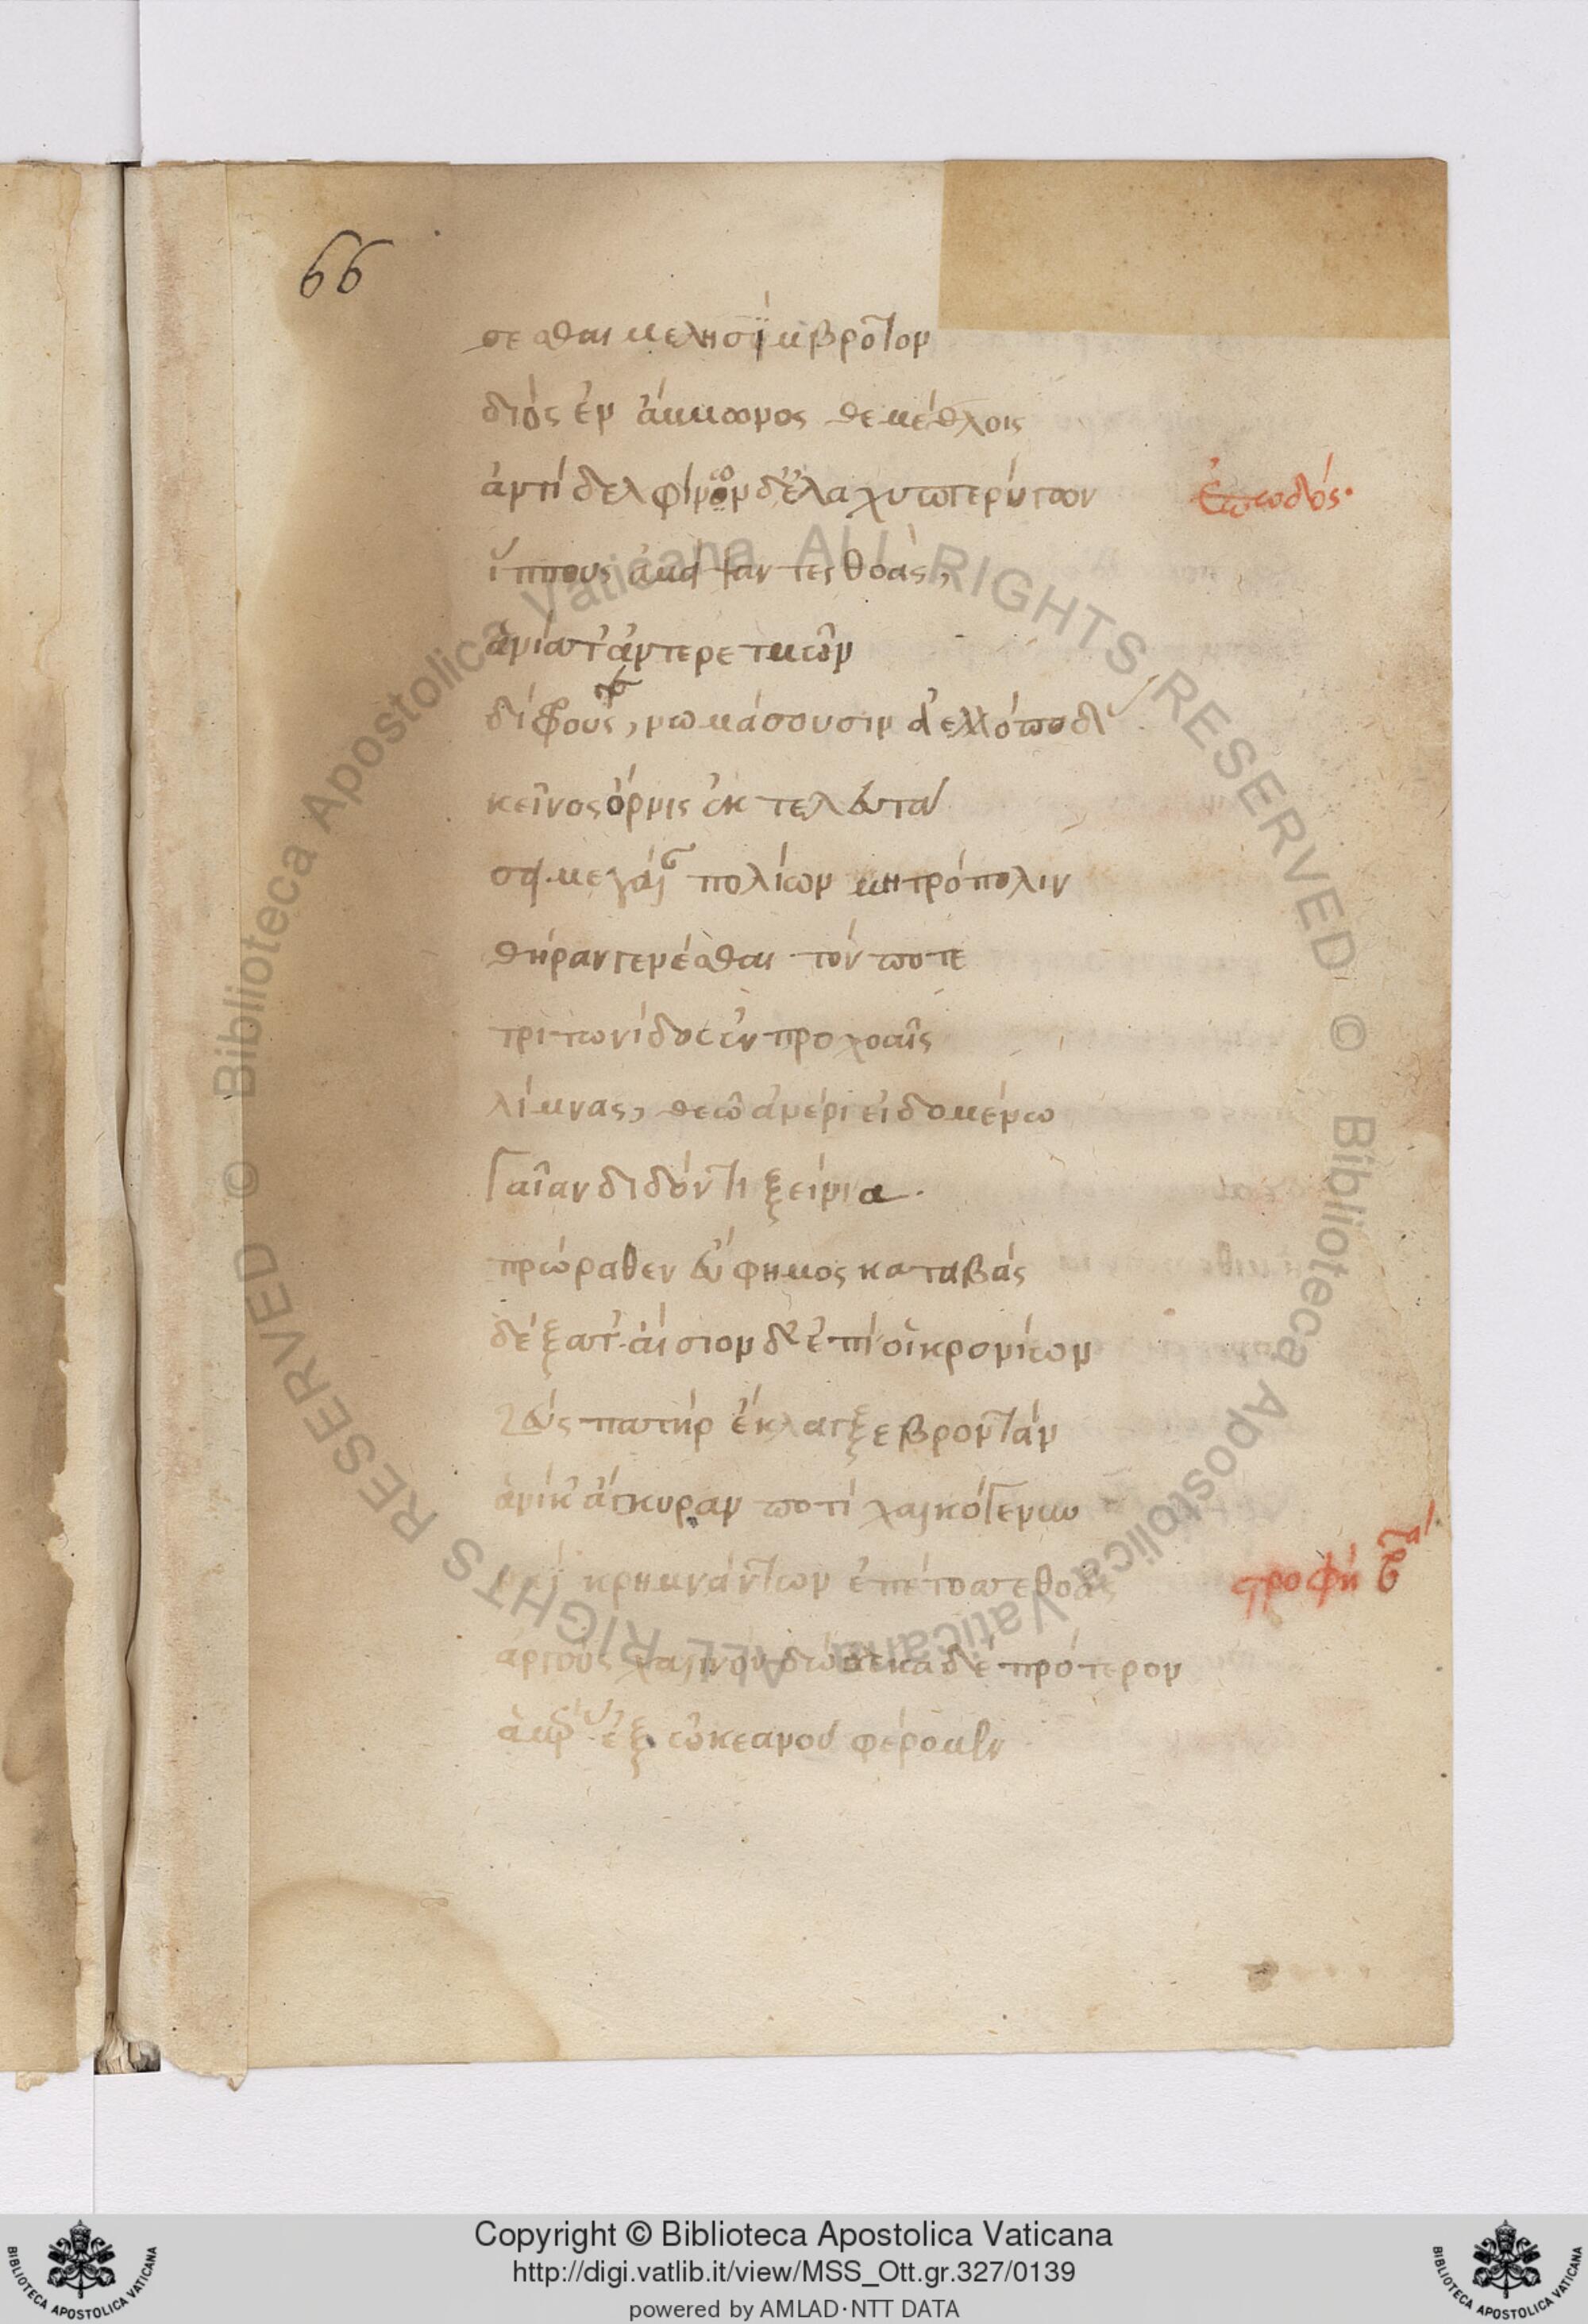 66
σεσθαι μελησίμβροτον
διὸς ἐν ἄμμωνος θεμέθλοις
ἀντὶ δελφίνων δ' ἐλαχυπτερύγων
ἐπωδός·
ἵππους ἀμείψαντες θοὰς,
ἁνία τ' ἀντ' ἐρετμῶν
δίφρους, νωμάσουσιν ἀελλόποδας
κεῖνος ὄρνις ἐκτελευτα
σει μεγάλαν πολίων μητρόπολιν
θήραν γενέσθαι τόν ποτε
τριτωνίδος ἐν προχοαῖς
λίμνας, θεῶ ἀνέρι εἰδομένω
γαῖαν διδόντι ξείνια.
πρώραθεν εὔφημος καταβὰς
δέξατ' αἴσιον δ' ἐπὶ οἱ κρονίων
ζεὺς πατὴρ ἔκλαγξε βροντάν
ἁνίκ' ἄγκυραν ποτὶ χαλκόγενυν
ναῒ κρημνάντων ἐπέτοσσε θοᾶς
στροφὴ β
ἀργοῦς χαλινόν δώδεκα δὲ πρότερον
ἁμέρας ἐξ ὠκεανοῦ φέρομεν
Biblioteca Apostolica Vaticana ALL RIGHTS RESERVED ©
Biblioteca Apostolica Vaticana ALL RIGHTS RESERVED ©
Copyright © Biblioteca Apostolica Vaticana
http://digi.vatlib.it/view/MSS_Ott.gr.327/0139
powered by AMLAD·NTT DATA
BIBLIOTECA APOSTOLICA VATICANA
BIBLIOTECA APOSTOLICA VATICANA